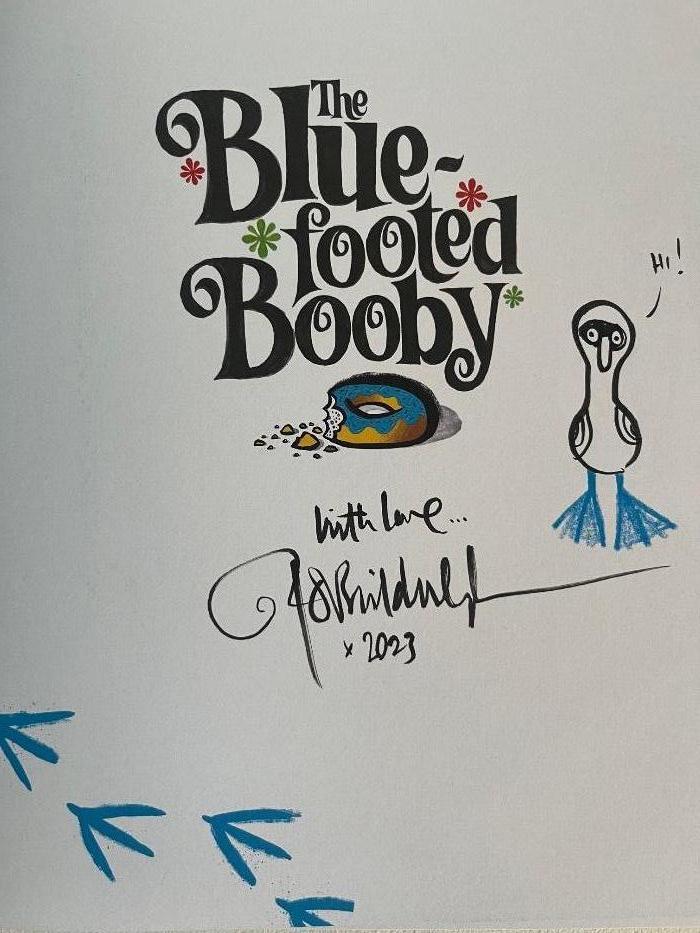 The
Blue-
footed
Booby
Hi!
with love...
Rob Biddulph
x 2023